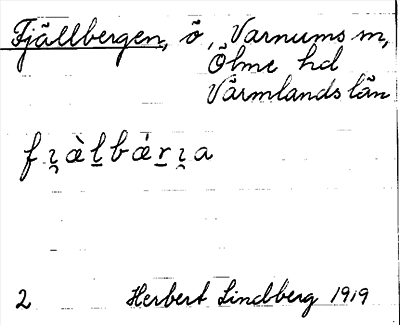 Fjällbergen, ö, Varnums sn,
Ölme hd
Värmlands län
fı̯æ̀ḻbǽṟı̯a
2 Herbert Lindberg 1919